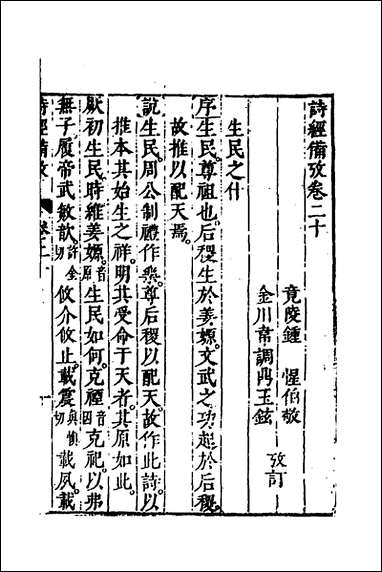 詩經備攷卷二十
竟陵鍾惺伯敬
金川韋調鼎玉鉉
攷訂
生民之什
序生民。尊祖也。后稷生於姜嫄。文武之功。起於后稷。
故推以配天焉。
說生民。周公制禮作樂。尊后稷以配天。故作此詩。以
推本其始生之祥。明其受命于天者。其原如此。
厥初生民。時維姜嫄。音原生民如何。克禋音因克祀。以弗
無子。履帝武敏歆。許金切攸介攸止。載震與慎切載夙。載
詩經備攷